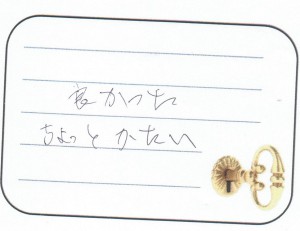 良かった
ちょっとかたい